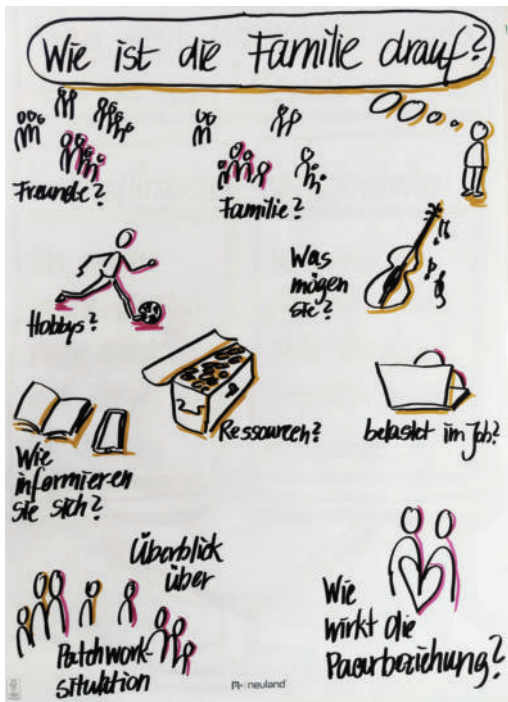 Wie ist die Familie drauf?
Freunde?
Familie?
Was
mögen
sie?
Hobbys?
Ressourcen?
belastet im Job?
Wie
informieren
sie sich?
Überblick
über
Patchwork-
situation
Wie
wirkt die
Paarbeziehung?
neuland